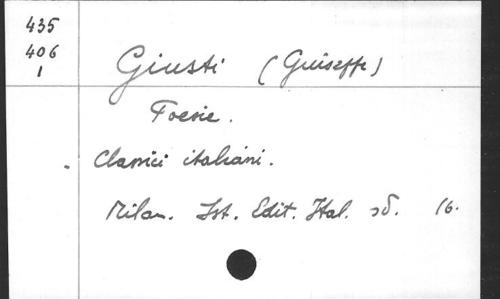 435
406
1
Giusti (Guiseppe)
Poesie.
Classici italiani.
Milan. Ist. Edit. Ital. sd. 16.